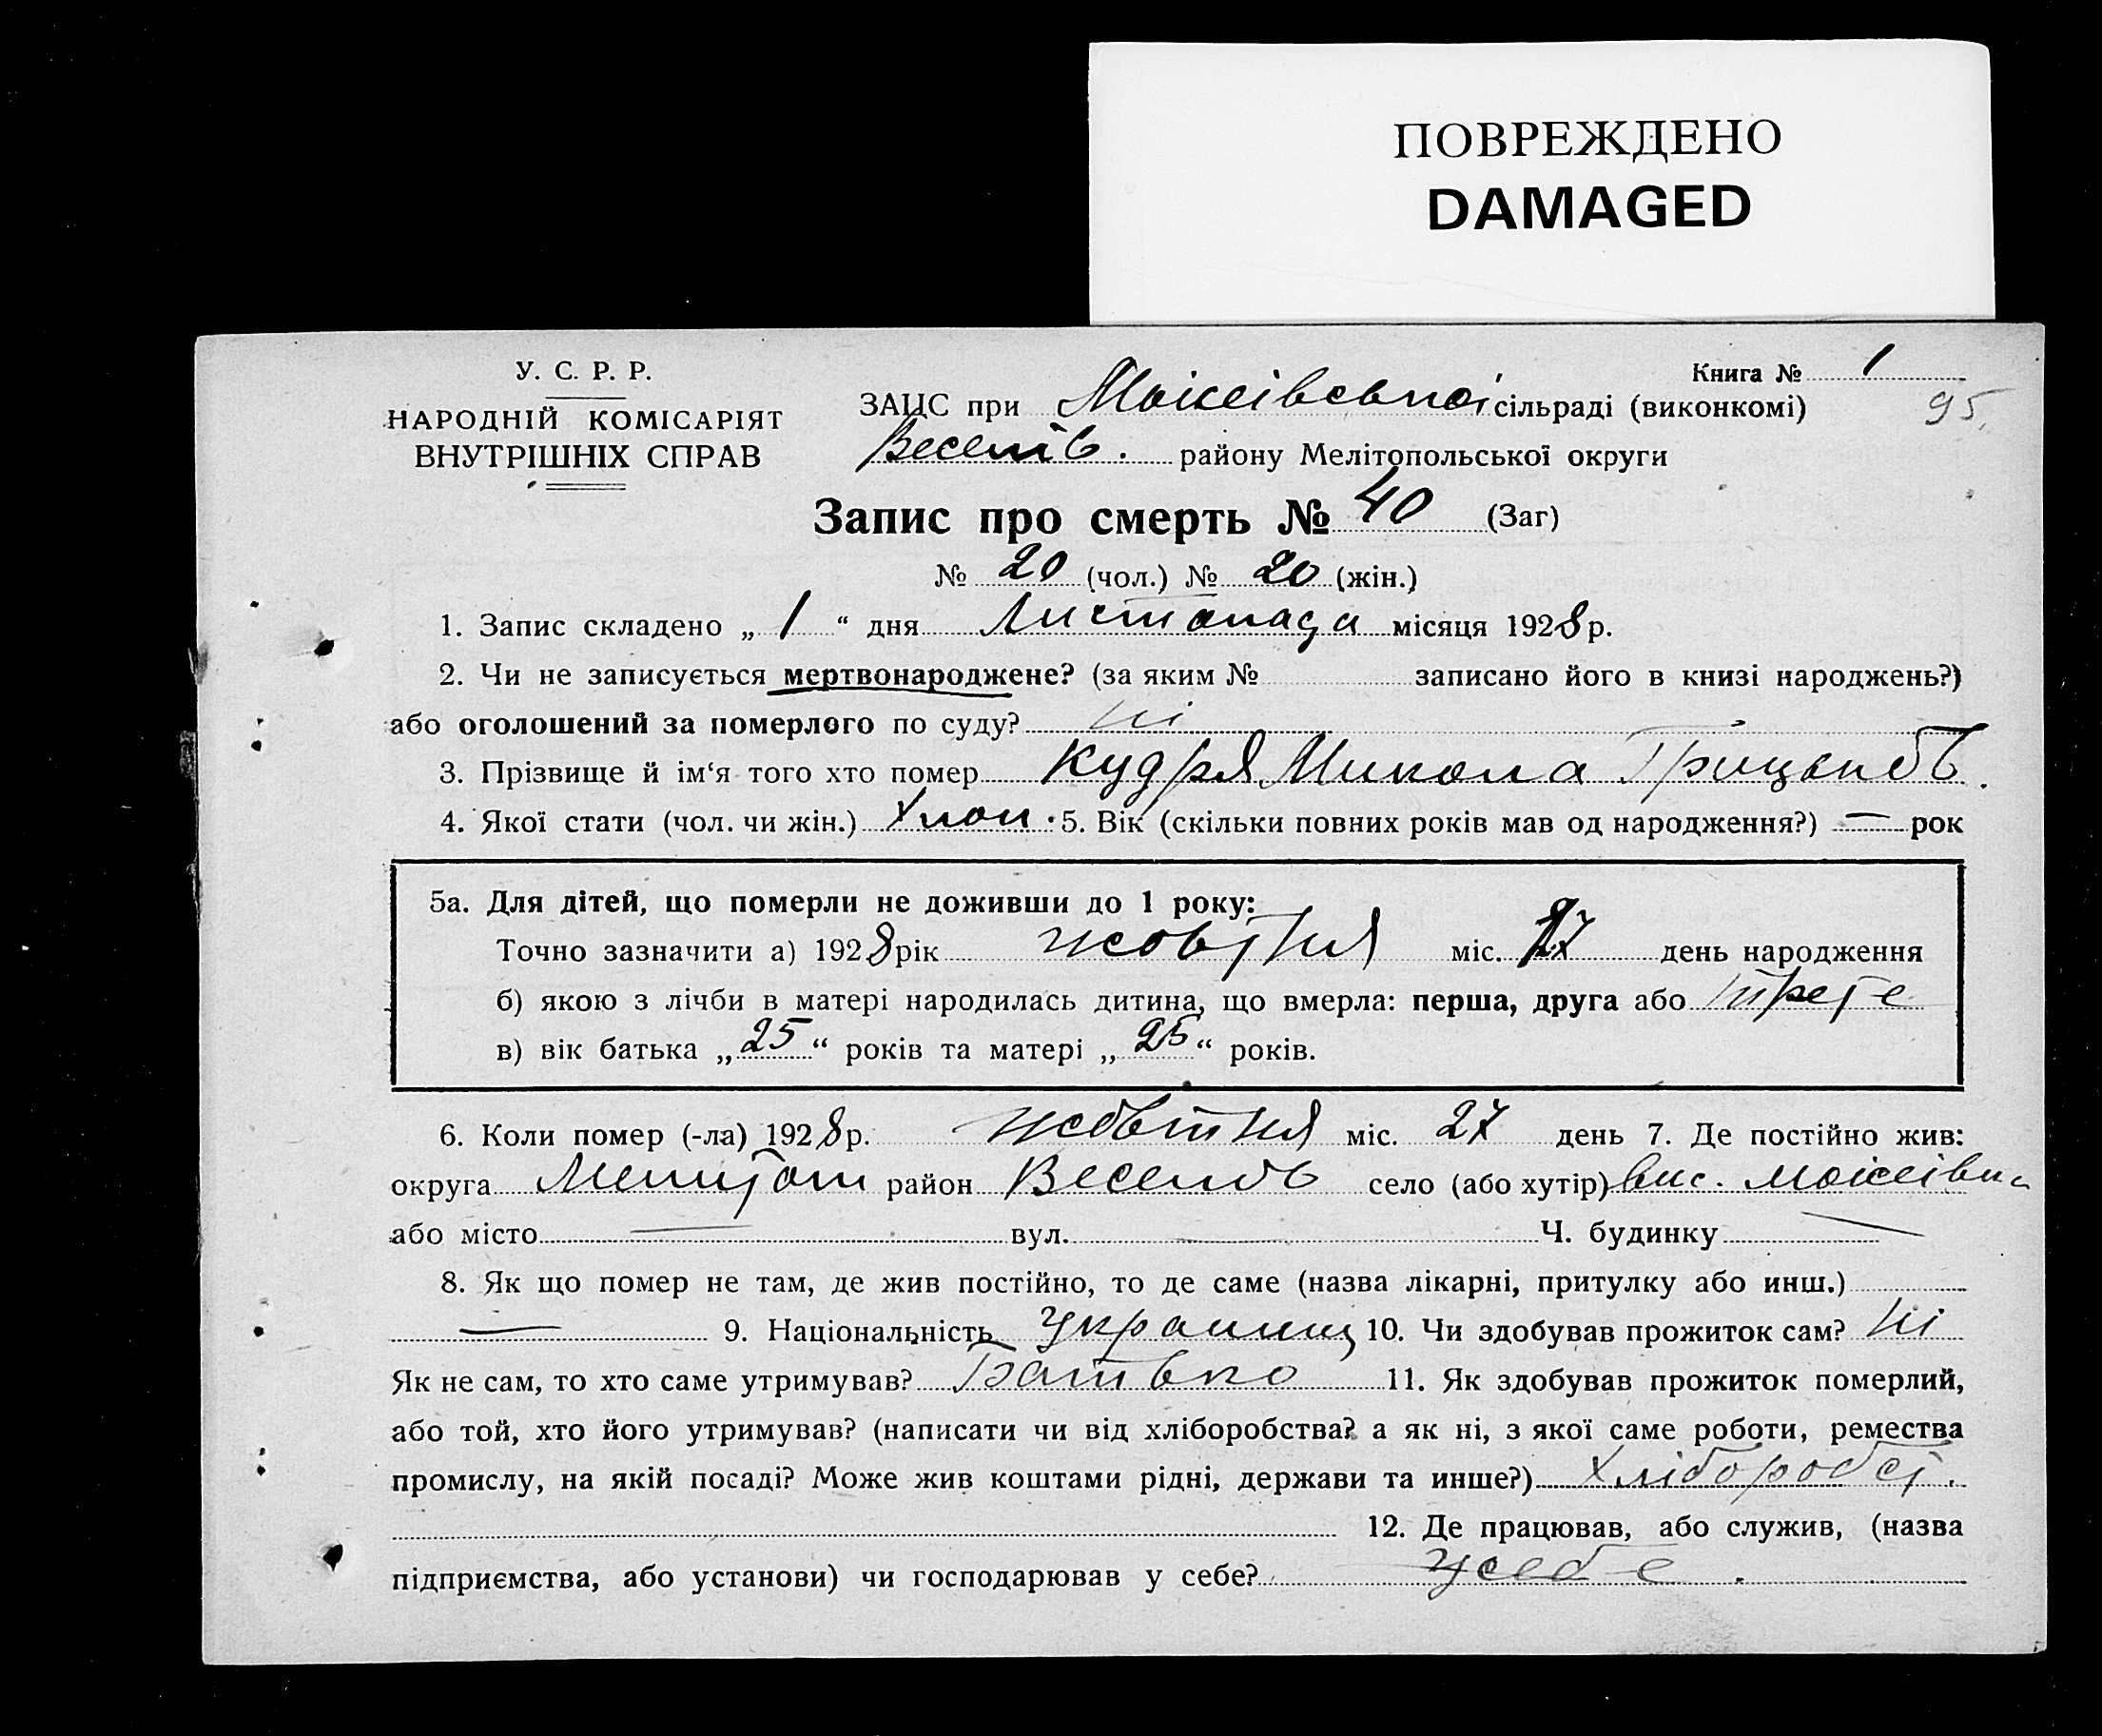 ПОВРЕЖДЕНО
DAMAGED
У. С. Р. Р.
НАРОДНІЙ КОМІСАРІЯТ
ВНУТРІШНІХ СПРАВ
Книга № 1
95.
ЗАЦС при Мойсеївської сільраді (виконкомі)
Веселів. району Мелітопольської округи
Запис про смерть № 40 (Заг)
№ 20 (чол.) № 20 (жін.)
1. Запис складено „ 1 “ дня Листопада місяця 1928 р.
2. Чи не записується мертвонароджене? (за яким № записано його в книзі народжень?)
або оголошений за померлого по суду? ні
3. Прізвище й ім‘я того хто помер Кудря Микола Грицьков.
4. Якої стати (чол. чи жін.) Хлоп. 5. Вік (скільки повних років мав од народження?) — рок
5а. Для дітей, що померли не доживши до 1 року:
Точно зазначити а) 1928 рік жовтня міс. день народження
б) якою з лічби в матері народилась дитина, що вмерла: перша, друга або трете
в) вік батька „ 25 “ років та матері „ 25 “ років.
6. Коли помер (-ла) 1928 р. жовтня міс. 27 день 7. Де постійно жив:
округа Мелитоп район Веселов село (або хутір) вис. Моісеівка
або місто — вул. — Ч. будинку —
8. Як що помер не там, де жив постійно, то де саме (назва лікарні, притулку або инш.)
— 9. Національність Украинец 10. Чи здобував прожиток сам? Ні
Як не сам, то хто саме утримував? Батько 11. Як здобував прожиток померлий,
або той, хто його утримував? (написати чи від хліборобства? а як ні, з якої саме роботи, ремества
промислу, на якій посаді? Може жив коштами рідні, держави та инше?) Хлібороббст.
12. Де працював, або служив, (назва
підприємства, або установи) чи господарював у себе? У себе.